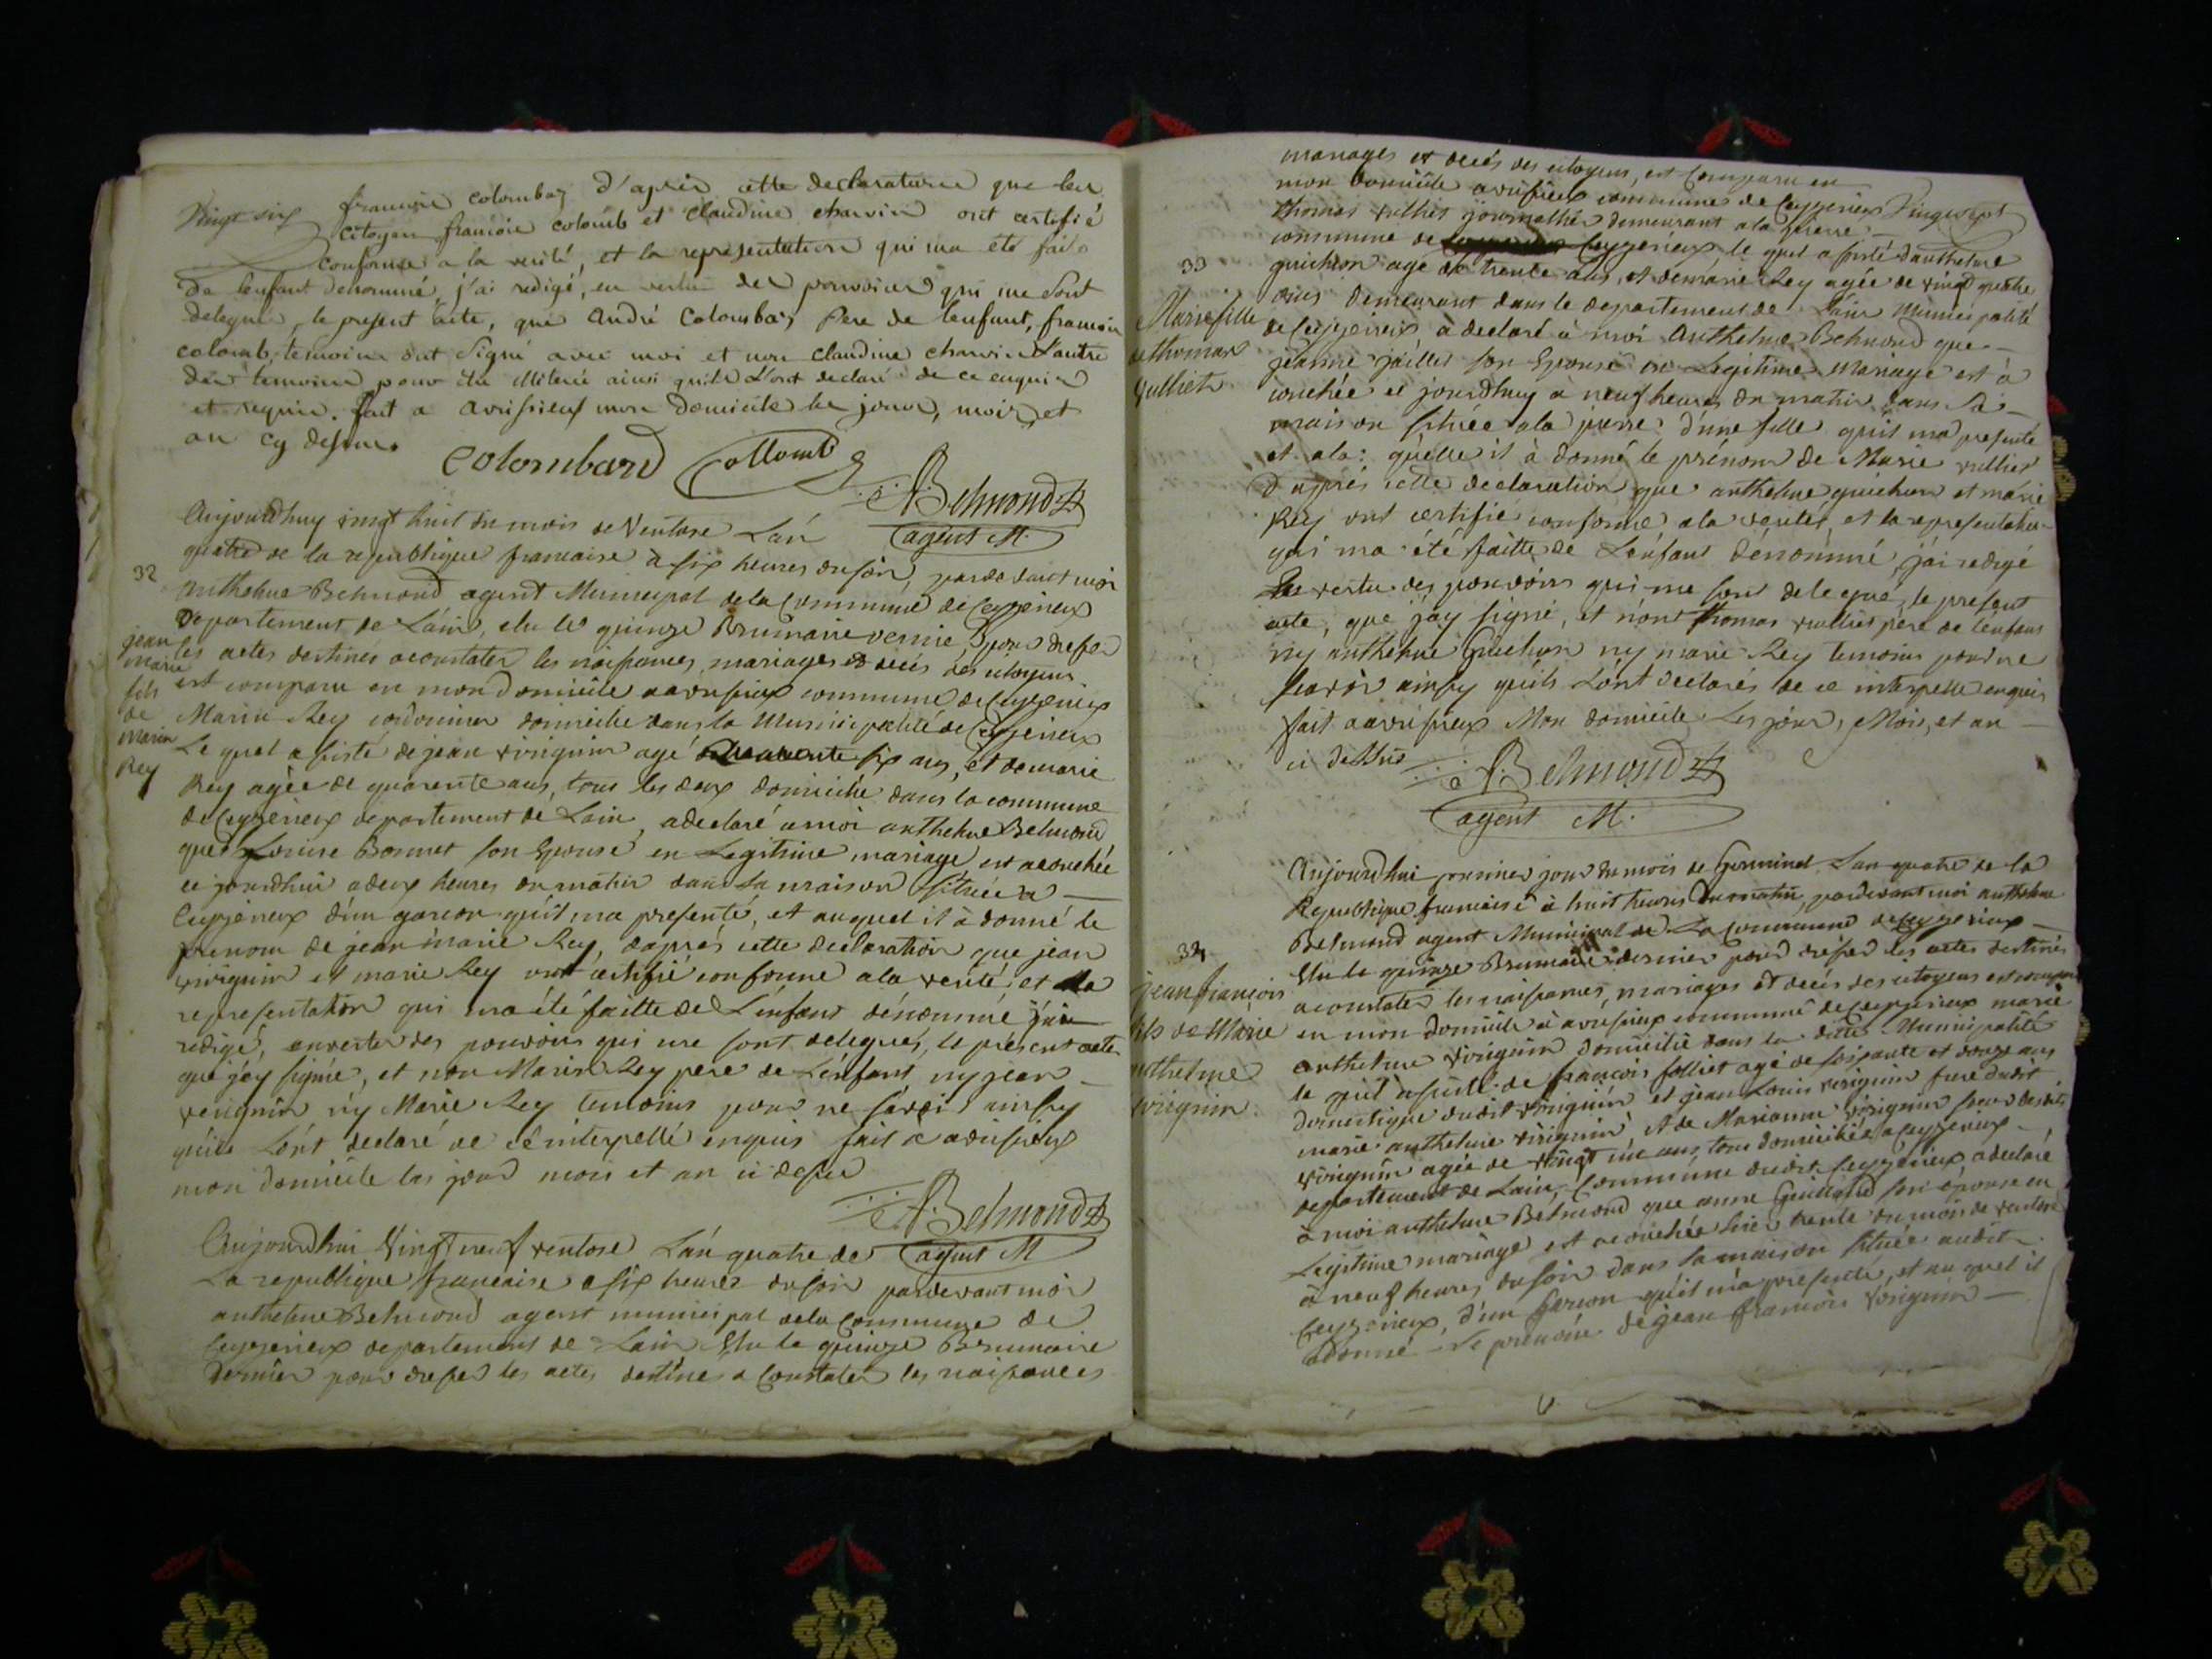 Vingt six
francois colombaz D'après cette declaration que les
citoyen francois colomb et claudine charvin ont certifié
conforme a la verité, et la representation qui ma été faite
de lenfant denommé, j'ai redigé, en vertu des pouvoirs qui me sont
delegués, le present acte, que André Colombaz Pere de lenfant, francois
colomb, temoins ont signé avec moi et non claudine charvin L'autre
des temoins pour etre illiteré ainsi quils L'ont declaré de ce enquis
et requis. fait a avrissieux mon domicile les jour, mois et
an cy dessus.
Colombard Collomb
A Belmond
agent M.
32
jean
marie
fils
de
marin
Rey
Aujourdhuy vingt huit du mois de Ventose L'an
quatre de la republique francaise à six heures du soir, par devant moi
Anthelme Belmond agent Municipal de la Commune de Ceyzerieux
Departement de L'ain, elu le quinze Brumaire dernier, pour dresser
les actes destines a constater les naissances, mariages et decés des citoyens
est comparu en mon domicile a avrissieux commune de Ceyzerieux
Marin Rey cordonnier domicilié dans la Municipalité de Ceyzerieux
Le quel assisté de jean virignin agé quarente six ans, et de marie
Rey agée de quarente ans, tous les deux domicilié dans la commune
de Ceyzerieux departement de Lain, a declaré a moi anthelme Belmond
que Louise Bonnet son Epouse en Legitime mariage est acouchée
ce jourdhui a deux heures du matin dans sa maison située a
Ceyzerieux d'un garcon quil ma presenté, et auquel il à donné le
prenom de jean marie Rey, daprés cette declaration que jean
virignin et marie Rey ont certifié conforme a la verité, et la
representation qui ma été faitte de L'enfant dénommé j'ai
redigé, en vertu des pouvoirs qui me sont delegués, le present acte
que j'ay signé, et non Marin Rey pere de L'enfant, ny jean
virignin n'y Marie Rey temoins pour ne savoir ainsy
quils L'ont declaré de ce interpellé enquis fait à avrissieux
mon domicile les jour mois et an ci dessus
A Belmond
agent M
Aujourdhui Vingt neuf ventose L'an quatre de
La republique francaise a six heures du soir pardevant moi
anthelme Belmond agent municipal de la Commune de
Ceyzerieux departement de Lain Elu le quinze Brumaire
Dernier pour dresser les actes destinés a Constater les naissances
Vingt sept
33
Marie fille
de thomas
Vulliet
mariages et decés des citoyens, est Comparu en
mon domicile avrissieux commune de Ceyzerieux
thomas vulliet journallier demeurant a la pierre
commune de Ceyzerieux le quel assisté d'anthelme
guichon agé de trente ans, et de marie Rey agée de vingt quatre
ans demeurant dans le departement de Lain Municipalité
de Ceyzerieux à declaré à moi Anthelme Belmond que
jeanne jaillet son Epouse en Legitime mariage est à
couchée ce jourdhuy à neuf heures du matin dans sa
maison située a la pierre d'une fille quil ma presenté
et a la quelle il à donné le prénom de Marie vulliet
d'aprés cette declaration que anthelme guichon et marie
Rey ont certifié conforme a la verité, et la representation
qui ma été faitte de L'enfant dénommé, j'ai redigé
En vertu des pouvoirs qui me sont delegué, le present
acte, que j'ay signé, et n'ont thomas vulliet pere de lenfant
ny anthelme Guichon ny marie Rey temoins pour ne
savoir ainsy quils L'ont declarés de ce interpellé enquis
fait a avrissieux Mon domicile Les jour, Mois, et an
ci dessus
A Belmond
agent M.
34
jean francois
fils de Marie
anthelme
virignin
Aujourdhui premier jour du mois de Germinal L'an quatre de la
Republique francaise à huit heures du matin, pardevant moi anthelme
Belmond agent Municipal de La Commune de Ceyzerieux
Elu le quinze Brumaire dernier pour dresser les actes destinés
a constater les naissances, mariages et decés des citoyens est comparu
en mon domicile à avrissieux commune de Ceyzerieux marie
anthelme Virignin domicilié dans la ditte Municipalité
le quel assisté de francois folliet agé de soixante et douze ans
domestique dudit virignin et jean Louis virignin frere dudit
marie anthelme virignin, et de Marianne virignin soeur desdits
virignin agée de vingt un ans, tous domiciliés a Ceyzerieux
departement de Lain, Commune dudit Ceyzerieux, a declaré
à moi anthelme Belmond que anne son épouse en
Legitime mariage est acouchée hier trente du mois de ventose
à neuf heures du soir dans sa maison située audit
Ceyzerieux, d'un Garcon quil m'a presenté, et au quel il
à donné le prenom de jean francois virignin